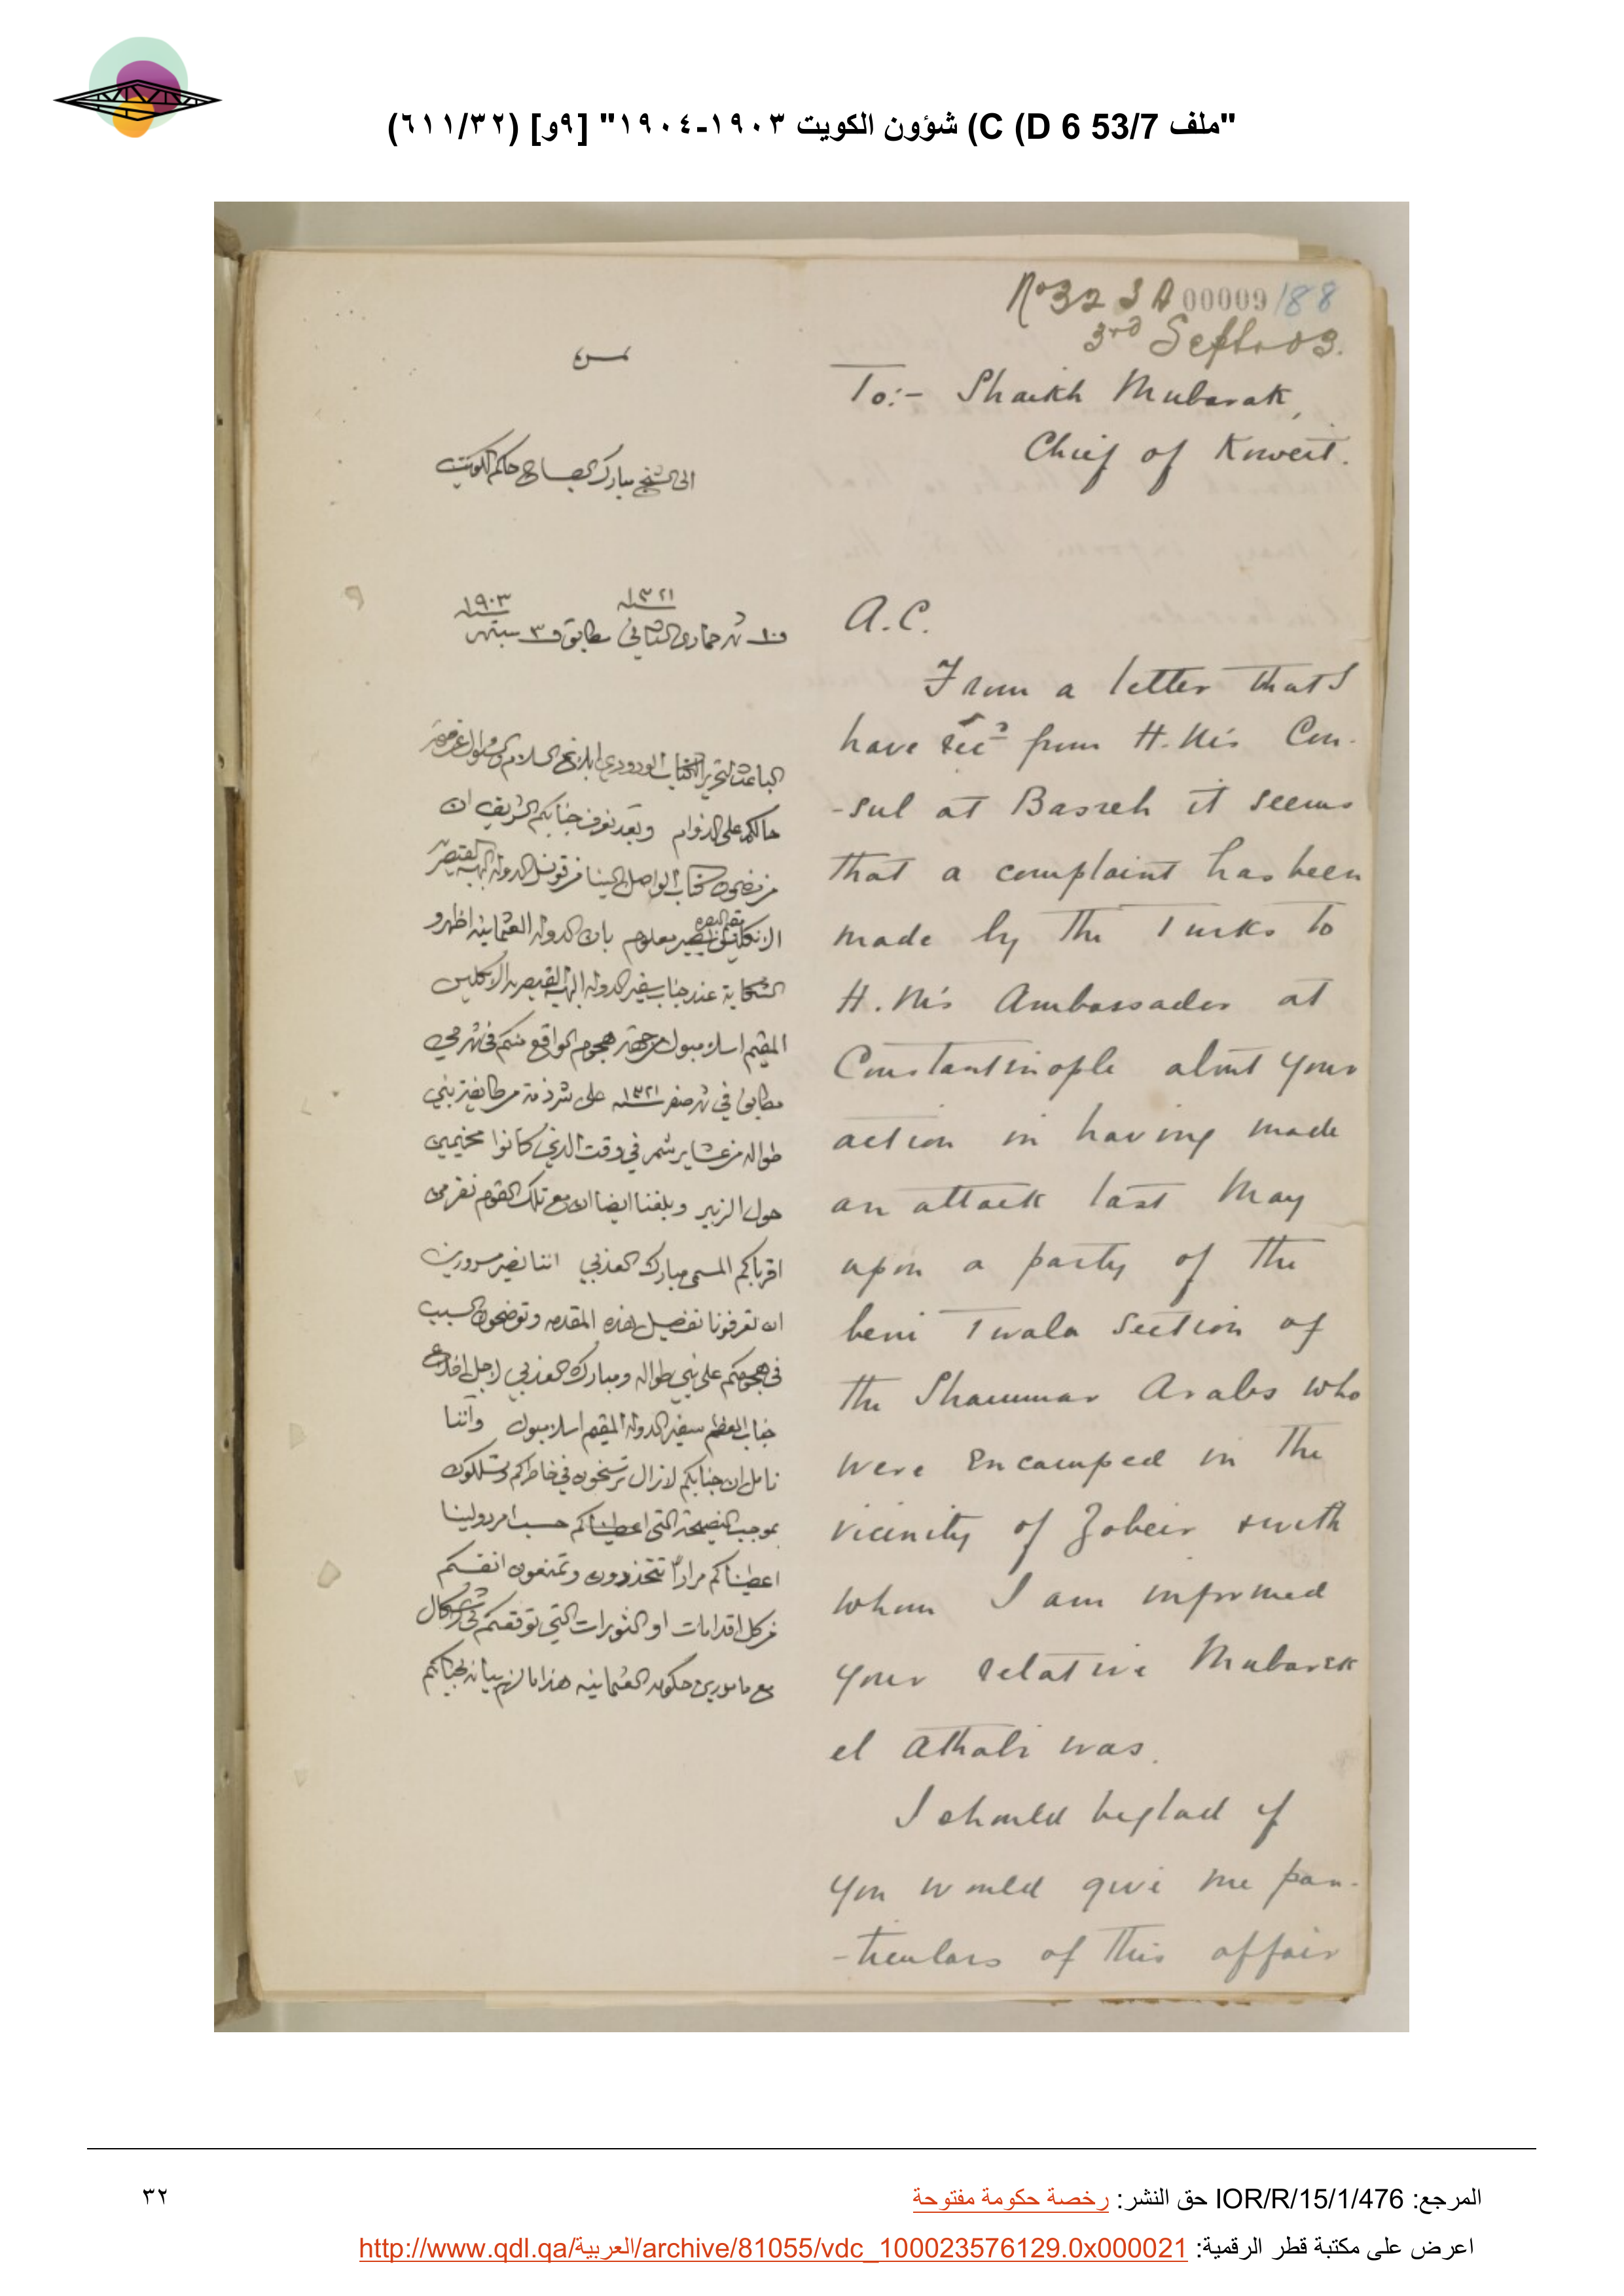 "ملف 53/7 C (D 6) شؤون الكويت ١٩٠٣-١٩٠٤" [٩و] (٦١١/٣٢)
No 323A 00009 188
3rd Septr 03.
To:- Shaikh Mubarak,
Chief of Koweit.
A.C.
From a letter that I
have recd from H.M's Con-
-sul at Basreh it seems
that a complaint has been
made by the Turks to
H.M's Ambassador at
Constantinople about your
action in having made
an attack last May
upon a party of the
beni Twala section of
the Shammar Arabs who
were encamped in the
vicinity of Zobeir & with
whom I am informed
your relative Mubarek
el Athabi was.
I should be glad if
you would give me par-
-ticulars of this affair
الى الشيخ مبارك الصباح حاكم الكويت
١٣٢١ ١٩٠٣
١٠ شهر جمادى الثاني مطابق ٣ سبتمبر
الباعث لتحرير الكتاب الودودي ابلاغ السلام
حالكم على الدوام وبعد نعرف جنابكم الشريف ان
من مضمون كتاب الواصل الينا من قونسل الدولة البهية القيصرية
الانكليس مقيم البصره يصير معلوم بان الدوله العثمانيه اظهرو
الشكاية عند جناب سفير الدوله البهية القيصريه الانكليس
المقيم اسلامبول من جهة هجوم الواقع منكم في شهر مي
مطابق في شهر صفر ١٣٢١ على شرذمة من طايفة بني
طواله من عشاير شمر في وقت الذي كانوا مخيمين
حول الزبير وبلغنا ايضا ان مع تلك القوم نفر من
اقرباكم المسمى مبارك العذبي اننا نصير مسرورين
ان تعرفونا تفصيل هذه المقدمه وتوضحون السبب
في هجومكم على بني طواله ومبارك العذبي لاجل
جناب المعظم سفير الدوله المقيم اسلامبول واننا
نامل ان جنابكم لازال ترسخون في خاطركم وتسلكون
بموجب النصيحة التي اعطيناكم حسب امر دولتنا
اعطيناكم مراراً تتحذرون وتمنعون انفسكم
من كل اقدامات او الثورات التي توقعكم في اشكال
مع مامورين حكومه العثمانيه هذا ما لزم بيانه لجنابكم
المرجع: IOR/R/15/1/476 حق النشر: رخصة حكومة مفتوحة
٣٢
اعرض على مكتبة قطر الرقمية: http://www.qdl.qa/العربية/archive/81055/vdc_100023576129.0x000021